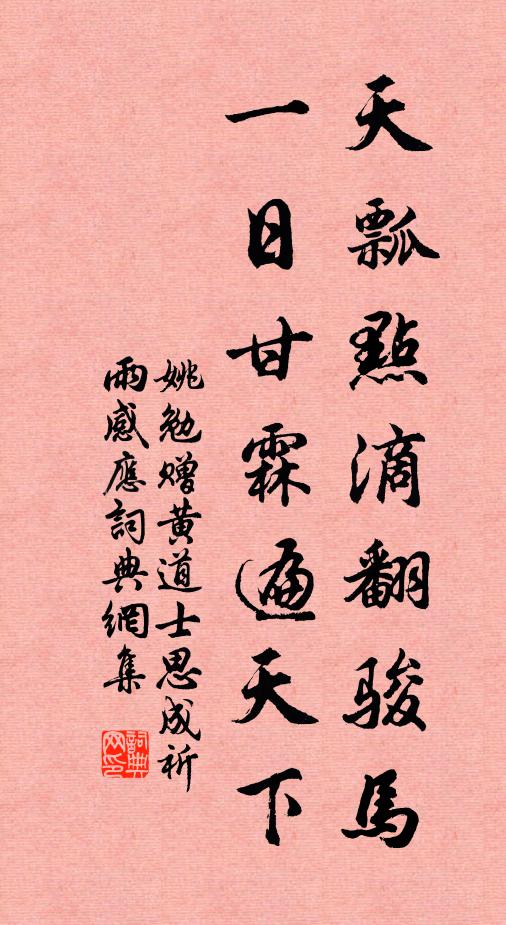 天瓢點滴翻駿馬
一日甘霖遍天下
姚勉贈黃道士思成祈
雨感應詞典網集
詞典網印